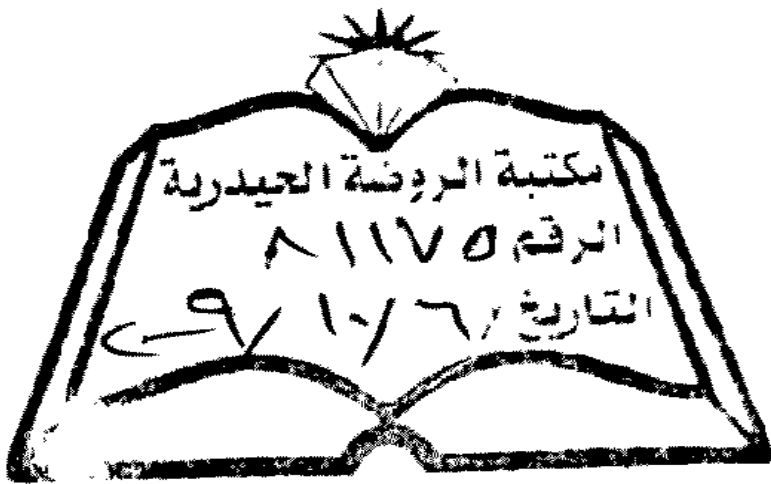 مكتبة الروضة الحيدرية
الرقم ٨١١٧٥
التاريخ ٦/١٠/٩